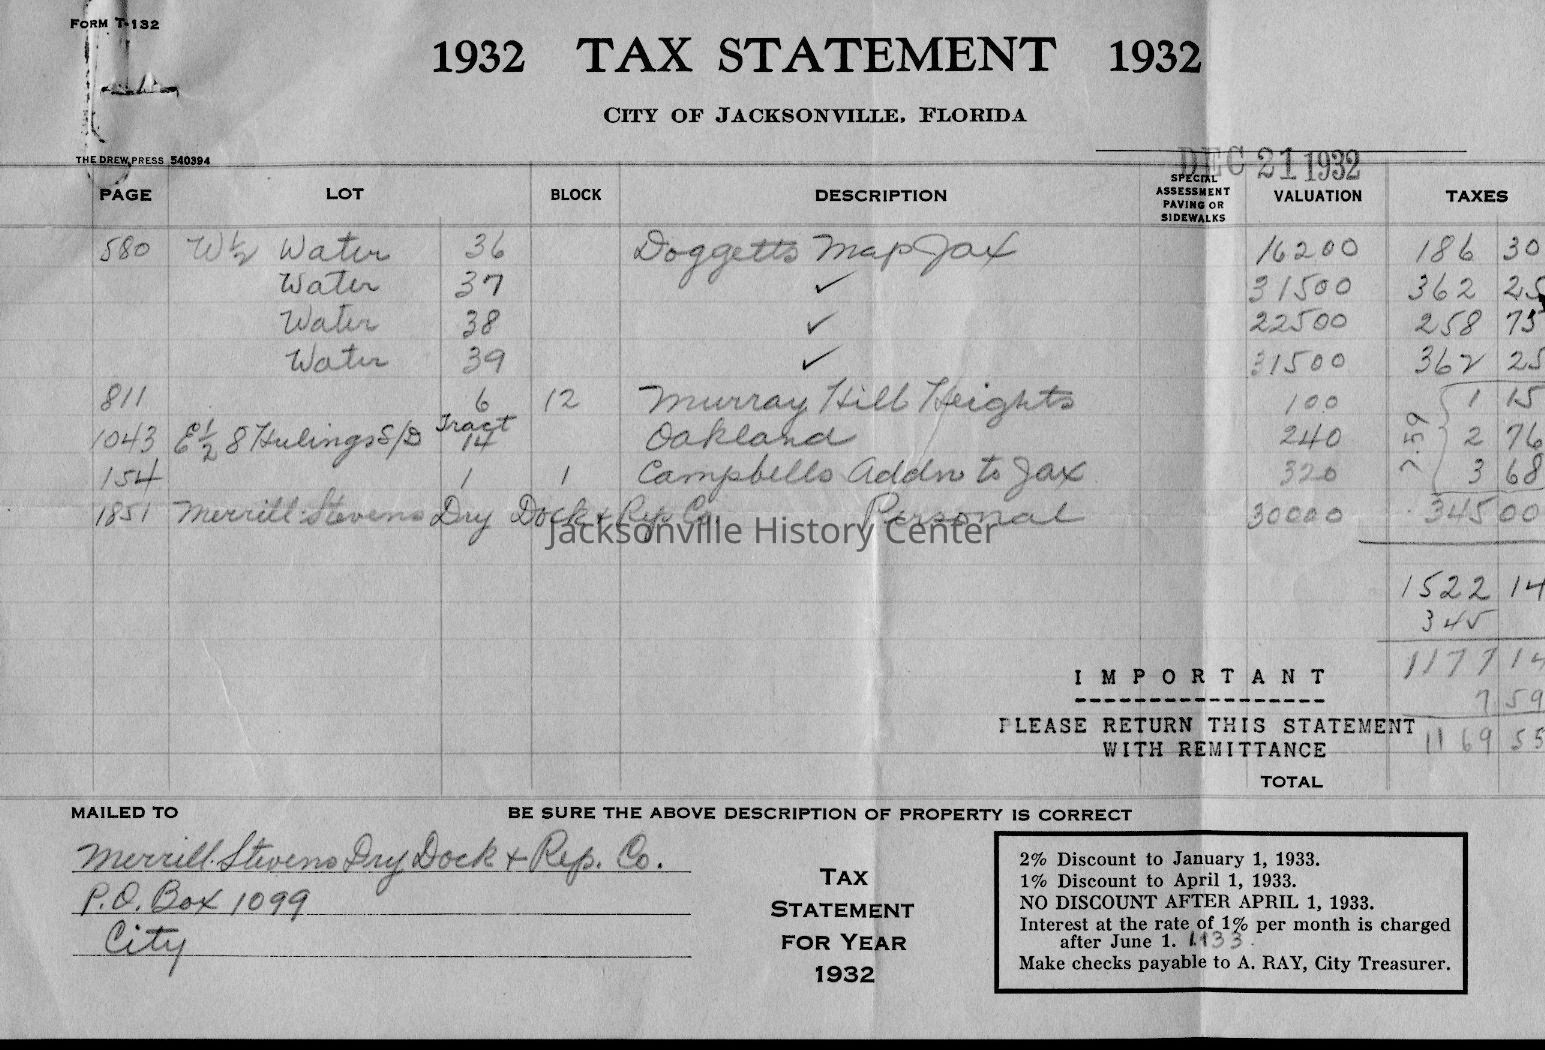 FORM T-132
1932 TAX STATEMENT 1932
CITY OF JACKSONVILLE, FLORIDA
THE DREW PRESS 540394
DEC 21 1932
PAGE LOT BLOCK DESCRIPTION SPECIAL ASSESSMENT PAVING OR SIDEWALKS VALUATION TAXES
580 W½ Water 36 Doggetts Map Jax 16200 186 30
Water 37 ✓ 31500 362 25
Water 38 ✓ 22500 258 75
Water 39 ✓ 31500 362 25
811 6 12 Murray Hill Heights 100 1 15
1043 E½ 8 Hulings S/D Tract 14 Oakland 240 7.59 2 76
154 1 1 Campbells Addn to Jax 320 3 68
1851 Merrill-Stevens Dry Dock & Rep. Co. Personal 30000 345 00
Jacksonville History Center
1522 14
345
1177 14
7 59
1169 55
IMPORTANT
PLEASE RETURN THIS STATEMENT
WITH REMITTANCE
TOTAL
MAILED TO BE SURE THE ABOVE DESCRIPTION OF PROPERTY IS CORRECT
Merrill-Stevens Dry Dock & Rep. Co.
P.O. Box 1099
City
TAX
STATEMENT
FOR YEAR
1932
2% Discount to January 1, 1933.
1% Discount to April 1, 1933.
NO DISCOUNT AFTER APRIL 1, 1933.
Interest at the rate of 1% per month is charged
after June 1. 1933.
Make checks payable to A. RAY, City Treasurer.